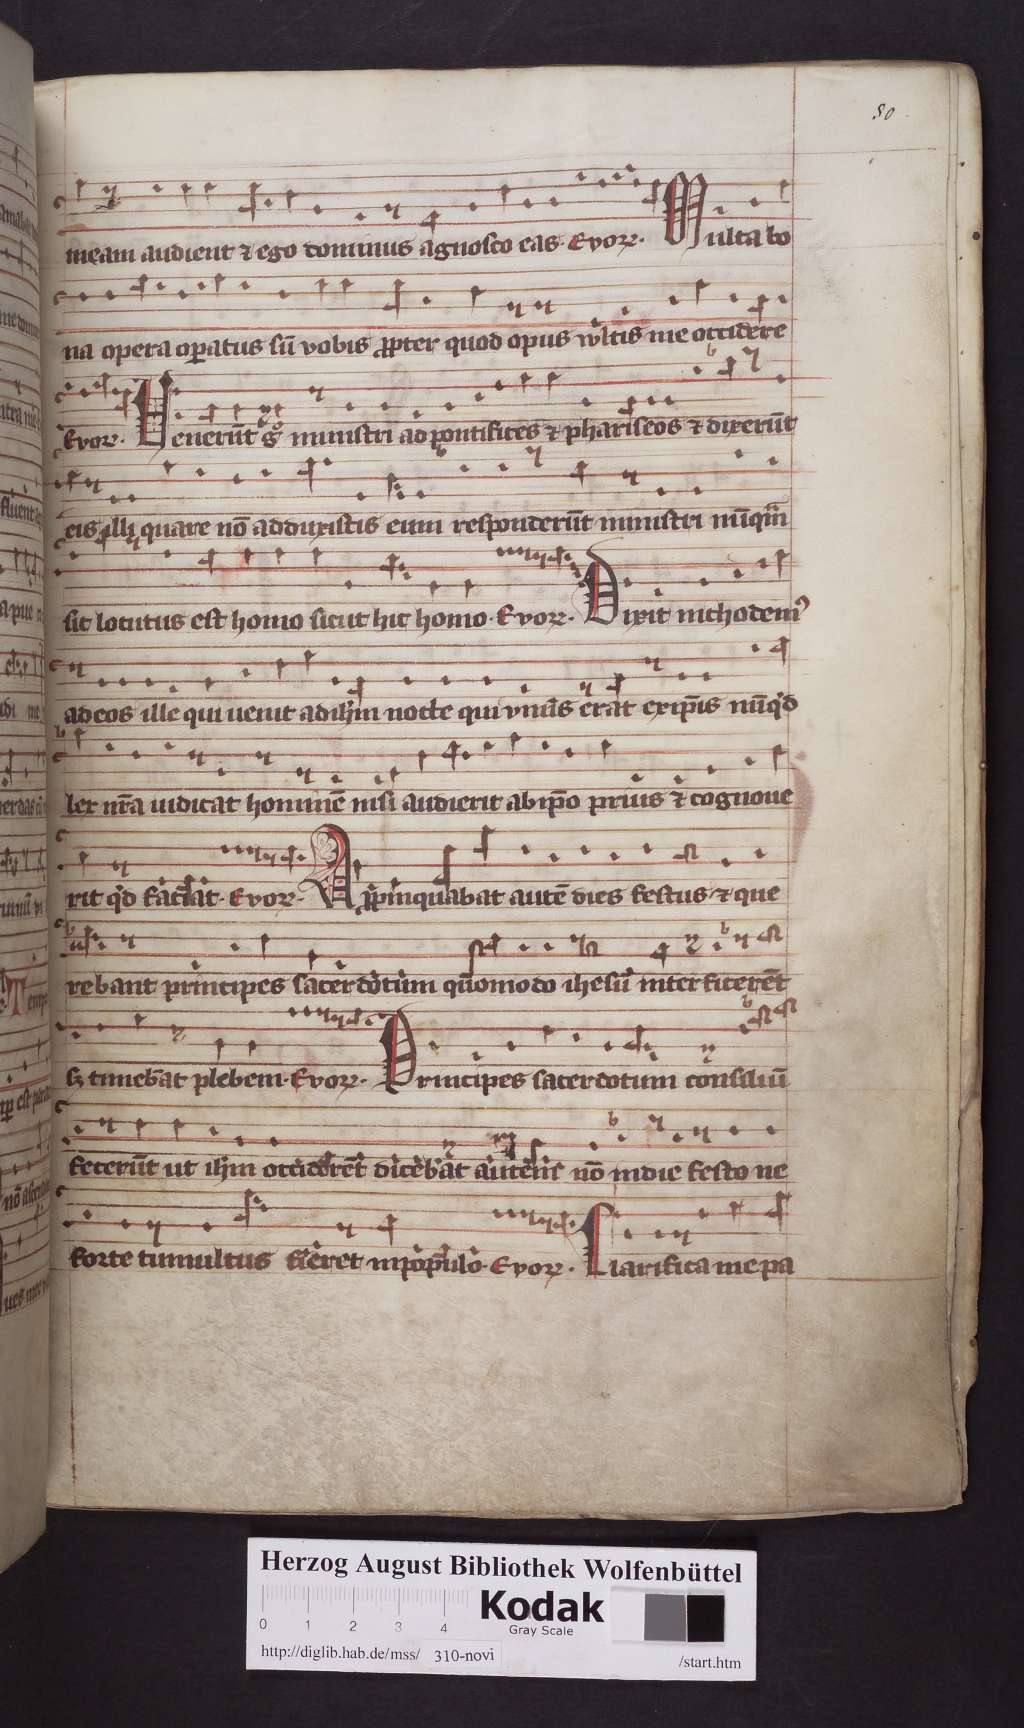 50
meam audient ⁊ ego dominus agnosco eas. Evovꝫ. Multa bo
na opera opatus sū vobis ꝓpter quod opus vltis me occidere
Evovꝫ. Venerūt gͦ ministri ad pontifices ⁊ phariseos ⁊ dixerūt
eis illi quare nō adduxistis eum responderūt ministri nūqm̄
sic locutus est homo sicut hic homo. Evovꝫ. Dixit nichodemꝰ
ad eos ille qui uenit ad ihm̄ nocte qui vnus erat ex ip̄is nūqd
lex nr̄a iudicat hominē nisi audierit ab ip̄o prius ⁊ cognoue
rit qd faciat. Evovꝫ. Appinquabat autē dies festus ⁊ que
rebant principes sacerdotum quomodo ihesū interficerēt
sꝫ timebāt plebem. Evovꝫ. Principes sacerdotum consiliū
fecerūt ut ihm̄ occiderēt dicebāt autem nō in die festo ne
forte tumultus fieret in populo. Evovꝫ. Clarifica me pa
Herzog August Bibliothek Wolfenbüttel
Kodak
Gray Scale
0 1 2 3 4
http://diglib.hab.de/mss/ 310-novi /start.htm